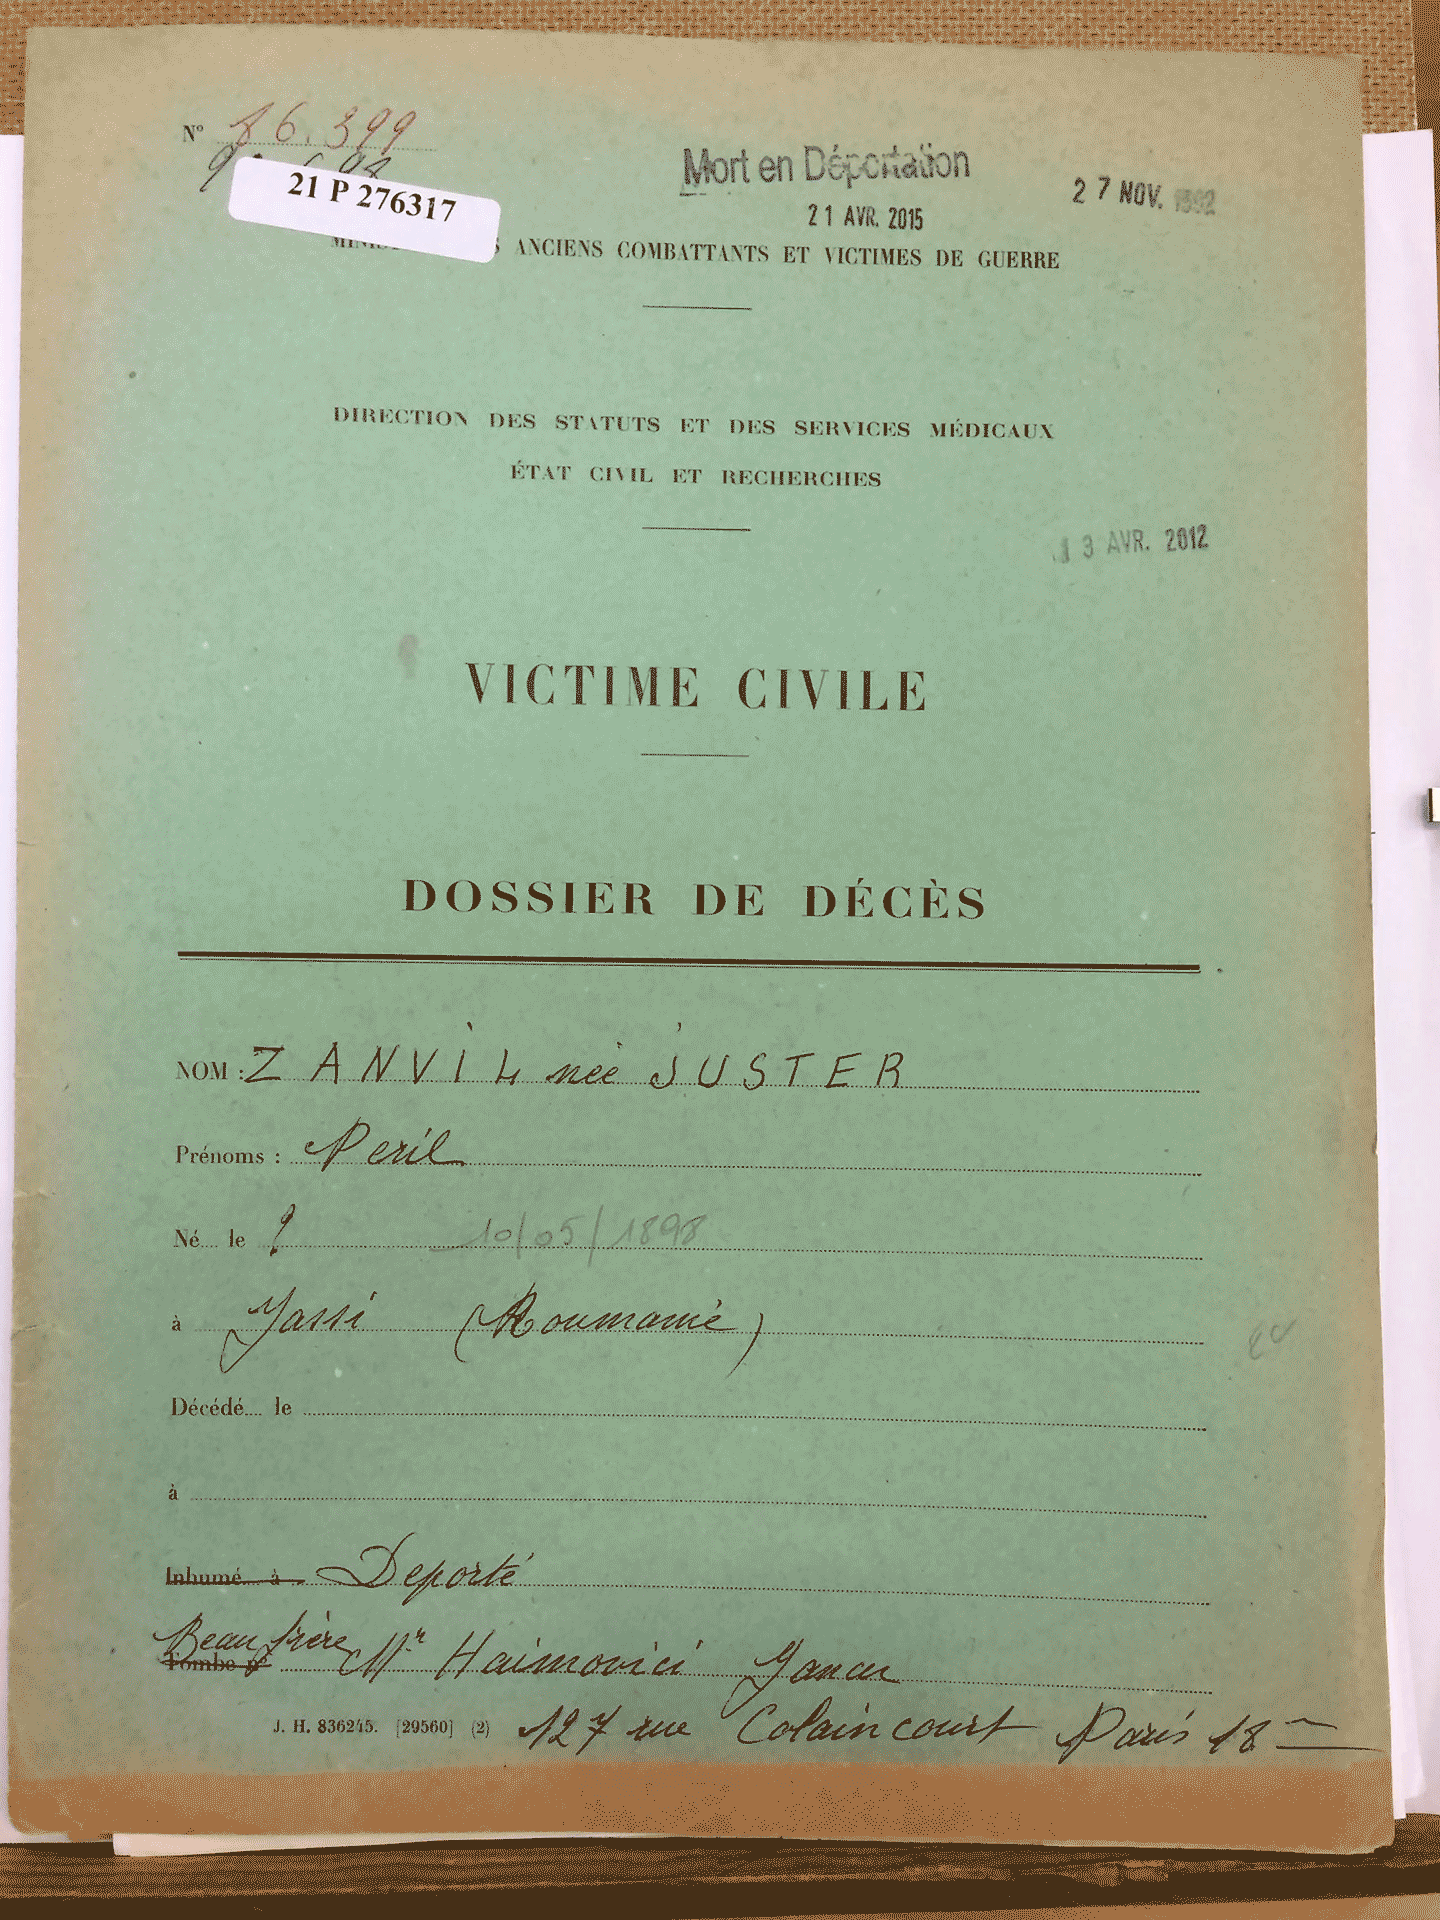 N° 36.399
21 P 276317
Mort en Déportation
21 AVR. 2015
27 NOV. 1992
ANCIENS COMBATTANTS ET VICTIMES DE GUERRE
DIRECTION DES STATUTS ET DES SERVICES MÉDICAUX
ÉTAT CIVIL ET RECHERCHES
13 AVR. 2012
VICTIME CIVILE
DOSSIER DE DÉCÈS
NOM : ZANVIL née JUSTER
Prénoms : Peril
Né le ? 10/05/1898
à Jassi (Roumanie)
Décédé le
à
Inhumé à Deporté
Beau frère
Tombe n° Mr Haimovici Jancu
J. H. 836245. [29560] (2) 127 rue Colaincourt Paris 18